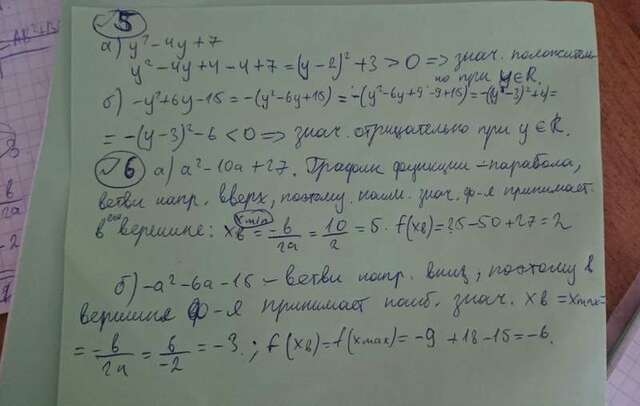 №5
а) y² - 4y + 7
y² - 4y + 4 - 4 + 7 = (y - 2)² + 3 > 0 => знач. положитель-
но при y ∈ R.
б) -y² + 6y - 15 = -(y² - 6y + 15) = -(y² - 6y + 9 - 9 + 15) = -((y - 3)² +
= -(y - 3)² - 6 < 0 => знач. отрицательно при y ∈ R.
№6 а) a² - 10a + 27. График функции - парабола,
ветви напр. вверх, поэтому наим. знач. ф-я принимает
в вершине: xв = xmin = -b/2a = 10/2 = 5. f(xв) = 25 - 50 + 27 = 2
б) -a² - 6a - 15 - ветви напр. вниз, поэтому в
вершине ф-я принимает наиб. знач. xв = xmax =
= -b/2a = 6/-2 = -3.; f(xв) = f(xmax) = -9 + 18 - 15 = -6.